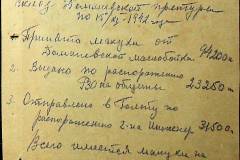 Доманевской претуры
по 15/XI-1942 года
1. Принято макухи от
Доманевского маслобойка 94200 кг
2. Выдано по распоряжению
на общины 23250 кг
3. Отправлено в Голту по
распоряжению 2-на Инженер 31500 кг
Всего имеется макухи на